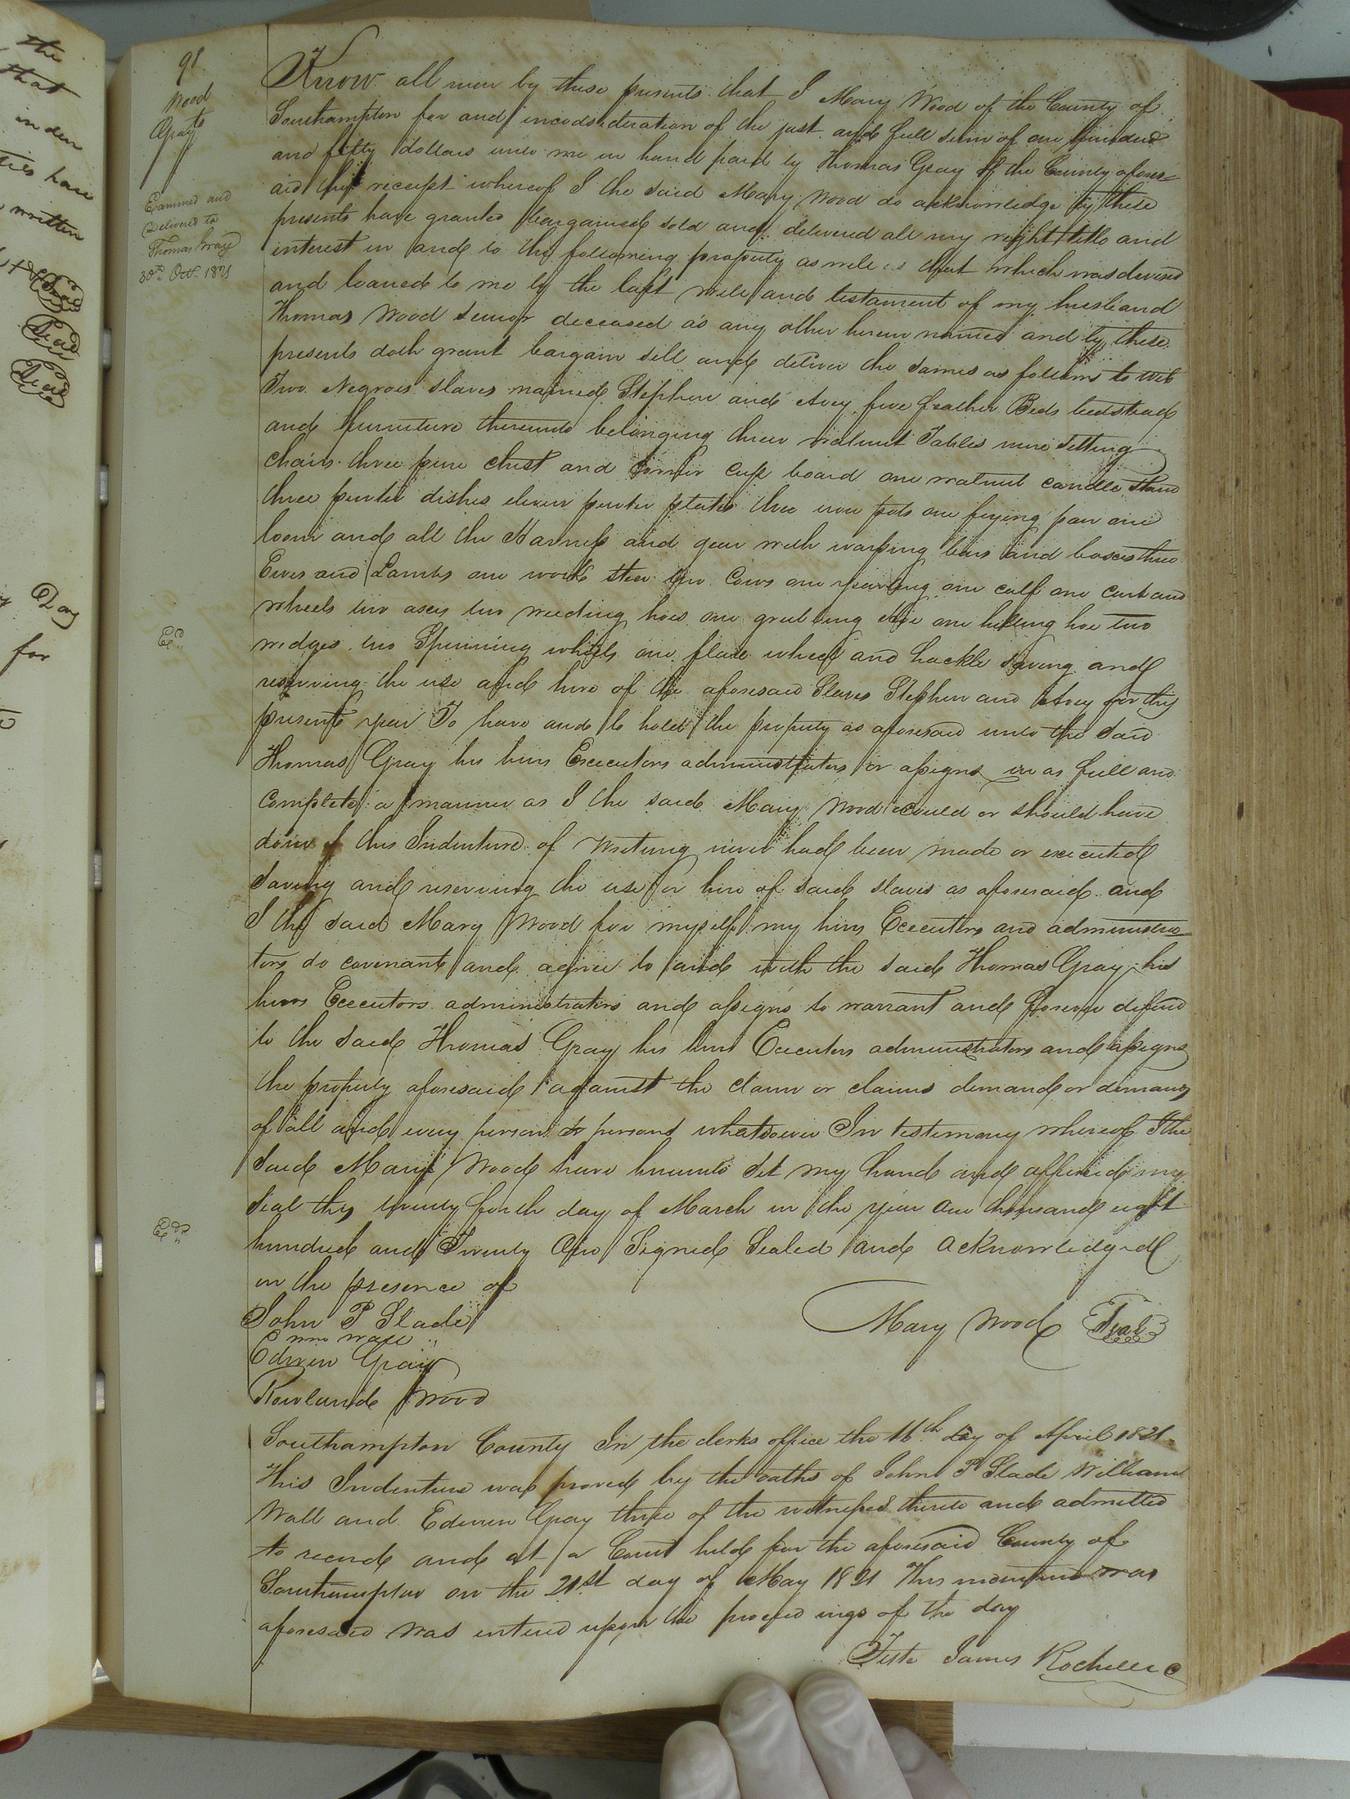 98
Wood
to
Gray
Examined and
Delivered to
Thomas Gray
30th Octr. 1821
Know all men by these presents that I Mary Wood of the County of
Southampton for and in consideration of the just and full sum of one hundred
and fifty dollars unto me in hand paid by Thomas Gray of the County afores-
aid the receipt whereof I the said Mary Wood do acknowledge by these
presents have granted bargained sold and delivered all my right title and
interest in and to the following property as well as that which was devised
and loaned to me by the last will and testament of my husband
Thomas Wood Senior deceased as any other herein named and by these
presents doth grant bargain sell and deliver the same as follows to wit
Two Negroes slaves named Stephen and Avey five feather Beds bedstead
and furniture thereunto belonging three walnut Tables nine setting
chairs three pine chist and corner cup board one walnut candle stand
three pewter dishes eleven pewter plates three iron pots one frying pan one
loom and all the Harness and gear with warping bars and boxes three
Ewes and Lambs one work steer two Cows one yearling one calf one cart and
wheels two axes two weeding hoes one grubbing hoe one hilling hoe two
wedges two Spinning wheels one flax wheel and hackle saving and
reserving the use and hire of the aforesaid Slaves Stephen and Avey for this
present year To have and to hold the property as aforesaid unto the said
Thomas Gray his heirs Executors administrators or assigns in as full and
complete a manner as I the said Mary Wood could or should have
done if this Indenture of writing never had been made or executed
Saving and reserving the use or hire of said slaves as aforesaid and
I the said Mary Wood for myself my heirs Executors and administra-
tors do covenant and agree to and with the said Thomas Gray his
heirs Executors administrators and assigns to warrant and forever defend
to the said Thomas Gray his heirs Executors administrators and assigns
the property aforesaid against the claim or claims demand or demands
of all and every person or persons whatsoever In testimony whereof I the
said Mary Wood have hereunto set my hand and affixed my
seal this twenty forth day of March in the year one thousand eight
hundred and Twenty One Signed Sealed and acknowledged
in the presence of
John P Slade
Wm Wall
Edwin Gray
Rowland Wood
Mary Wood Seal
Southampton County In the clerks office the 16th day of April 1821.
This Indenture was proved by the oaths of John P Slade William
Wall and Edwin Gray three of the witnesses thereto and admitted
to record and at a Court held for the aforesaid County of
Southampton on the 21st day of May 1821 This indenture was
aforesaid was entered upon the proceedings of the day
Teste James Rochelle C
the
that
inden
have
written
Seal
Seal
Day
for